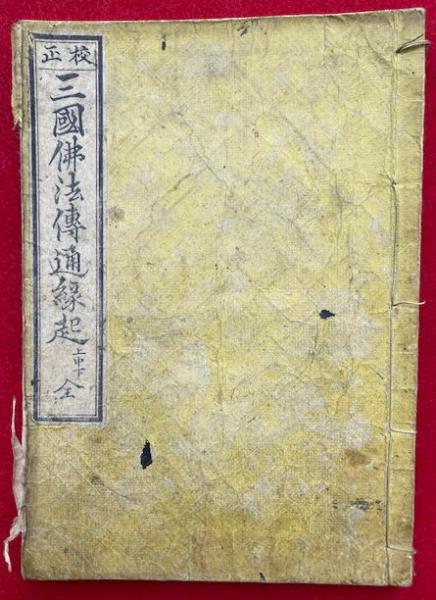 校正
三國佛法傳通緣起 上中下 全